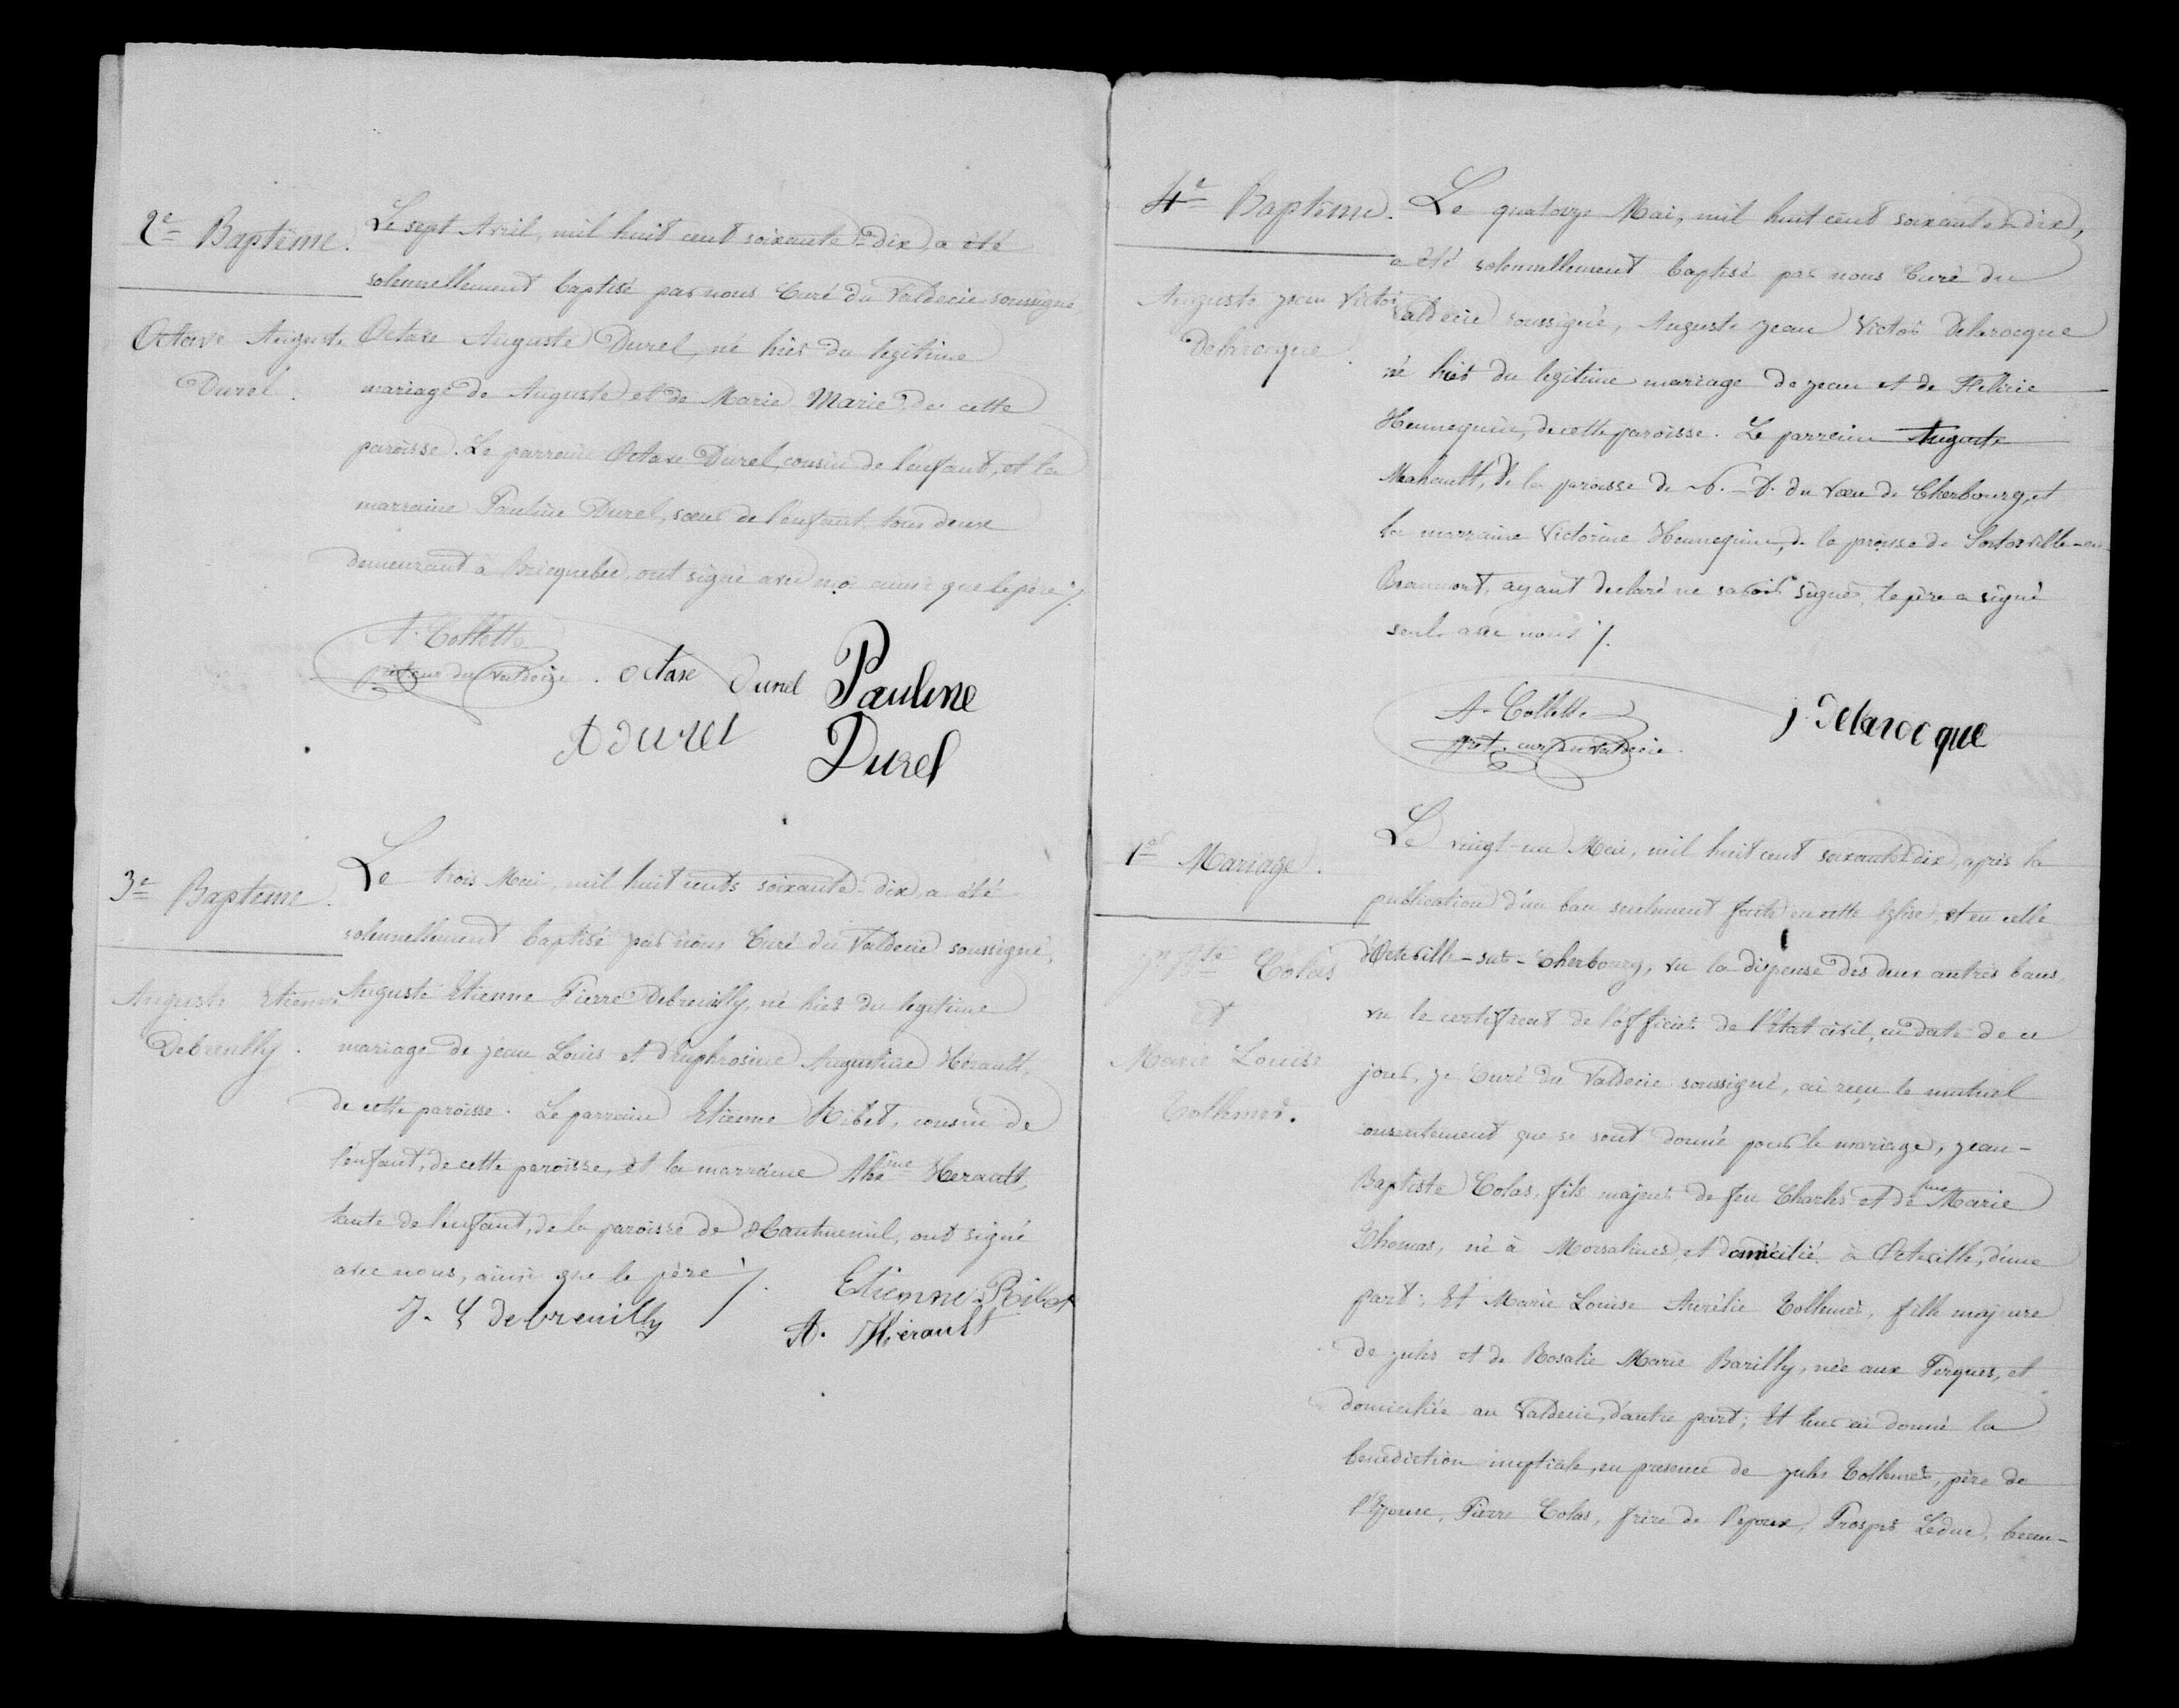 2e Baptême.
Octave Auguste
Durel.
Le sept Avril, mil huit cent soixante-dix, a été
solennellement baptisé par nous Curé du Valdecie soussigné,
Octave Auguste Durel, né hier du legitime
mariage de Auguste et de Marie Marie, de cette
paroisse. Le parrain Octave Durel, cousin de l'enfant, et la
marraine Pauline Durel, soeur de l'enfant, tous deux
demeurant à Bricquebec, ont signé avec moi ainsi que le père ./.
A. Collette
pret. cur du Valdecie. octave durel Pauline
A durel Durel
3e Baptême.
Auguste Etienne
Debreuilly.
Le trois Mai, mil huit cents soixante-dix, a été
solennellement baptisé par nous Curé du Valdecie soussigné,
Auguste Etienne Pierre Debreuilly, né hier du legitime
mariage de Jean Louis et d'Euphrosine Augustine Hérault,
de cette paroisse. Le parrain Etienne Ribet, cousin de
l'enfant, de cette paroisse, et la marraine Herault,
tante de l'enfant, de la paroisse de Hautmenil, ont signé
avec nous, ainsi que le père ./. Etienne Ribet
J. L debreuilly A. Hérault
4e Baptême.
Auguste Jean Victor
Delarocque.
Le quatorze Mai, mil huit cent soixante-dix,
a été solennellement baptisé par nous Curé du
Valdecie soussigné, Auguste Jean Victor Delarocque
né hier du legitime mariage de Jean et de
Hennequin, de cette paroisse. Le parrain Auguste
Mahault, de la paroisse de N. D. du Voeu de Cherbourg, et
la marraine Victorine Hennequin, de la proisse de Sortosville-en-
Beaumont, ayant declaré ne savoir signer, le père a signé
seul avec nous ./.
A. Collette
pret. cur du Valdecie. j. Delarocque
1er Mariage.
Jn Bte Colas
et
Marie Louise
Tollemer.
Le vingt-un Mai, mil huit cent soixante-dix, après la
publication d'un ban seulement faite en cette Eglise, et en celle
d'Octeville-sur-Cherbourg, vu la dispense des deux autres bans,
vu le certificat de l'officier de l'Etat civil, en date de ce
jour, je Curé du Valdecie soussigné, ai reçu le mutuel
consentement que se sont donné pour le mariage, Jean-
Baptiste Colas, fils majeur de feu Charles et de fue Marie
Thomas, né à Morsalines, et domicilié à Octeville, d'une
part; Et Marie Louise Aurélie Tollemer, fille majeure
de Jules et de Rosalie Marie Barilly, née aux Perques, et
domiciliée au Valdecie, d'autre part; Et leur ai donné la
benediction nuptiale, en presence de Jules Tollemer, père de
l'Epouse, Pierre Colas, frère de l'époux, Prosper Leduc, beau-